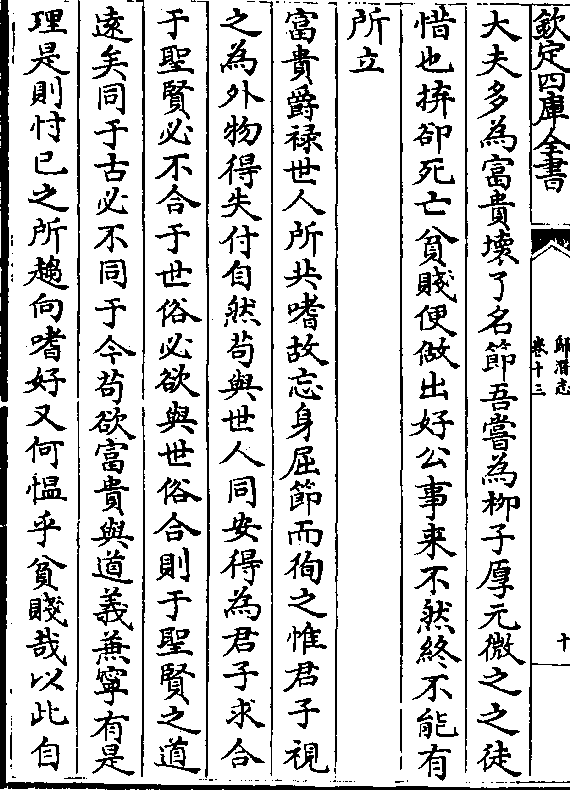 欽定四庫全書
歸潛志
卷十三
十
大夫多為富貴壞了名節吾嘗為柳子厚元微之之徒
惜也拚卻死亡貧賤便做出好公事来不然終不能有
所立
富貴爵禄世人所共嗜故忘身屈節而徇之惟君子視
之為外物得失付自然苟與世人同安得為君子求合
于聖賢必不合于世俗必欲與世俗合則于聖賢之道
遠矣同于古必不同于今苟欲富貴與道義兼寧有是
理是則忖已之所趨向嗜好又何愠乎貧賤哉以此自